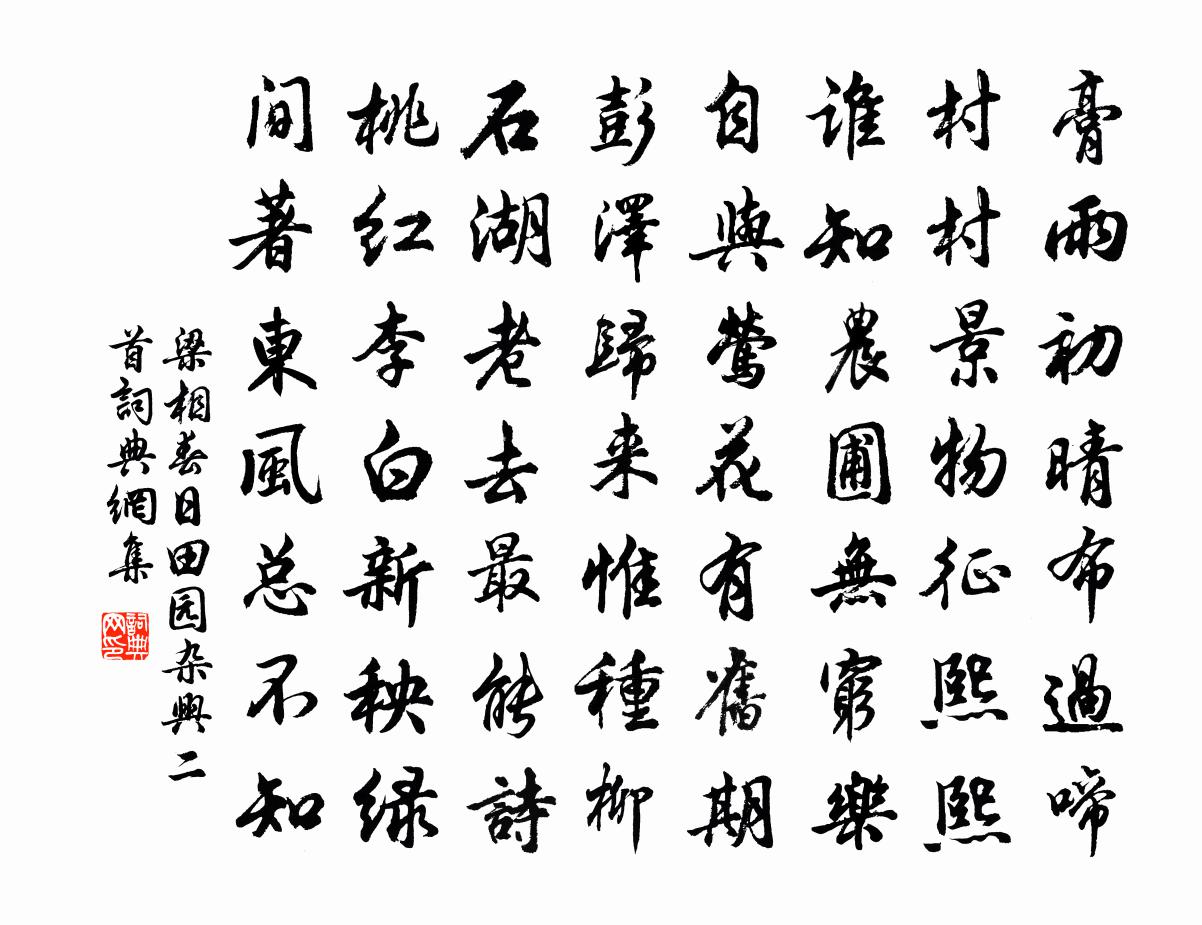 膏雨初晴布過啼
村村景物征熙熙
谁知農圃無窮樂
自與鶯花有舊期
彭澤歸来惟種柳
石湖老去最能詩
桃红李白新秧绿
間著東風总不知
梁相春日田园杂興二
首詞典網集
詞典网印